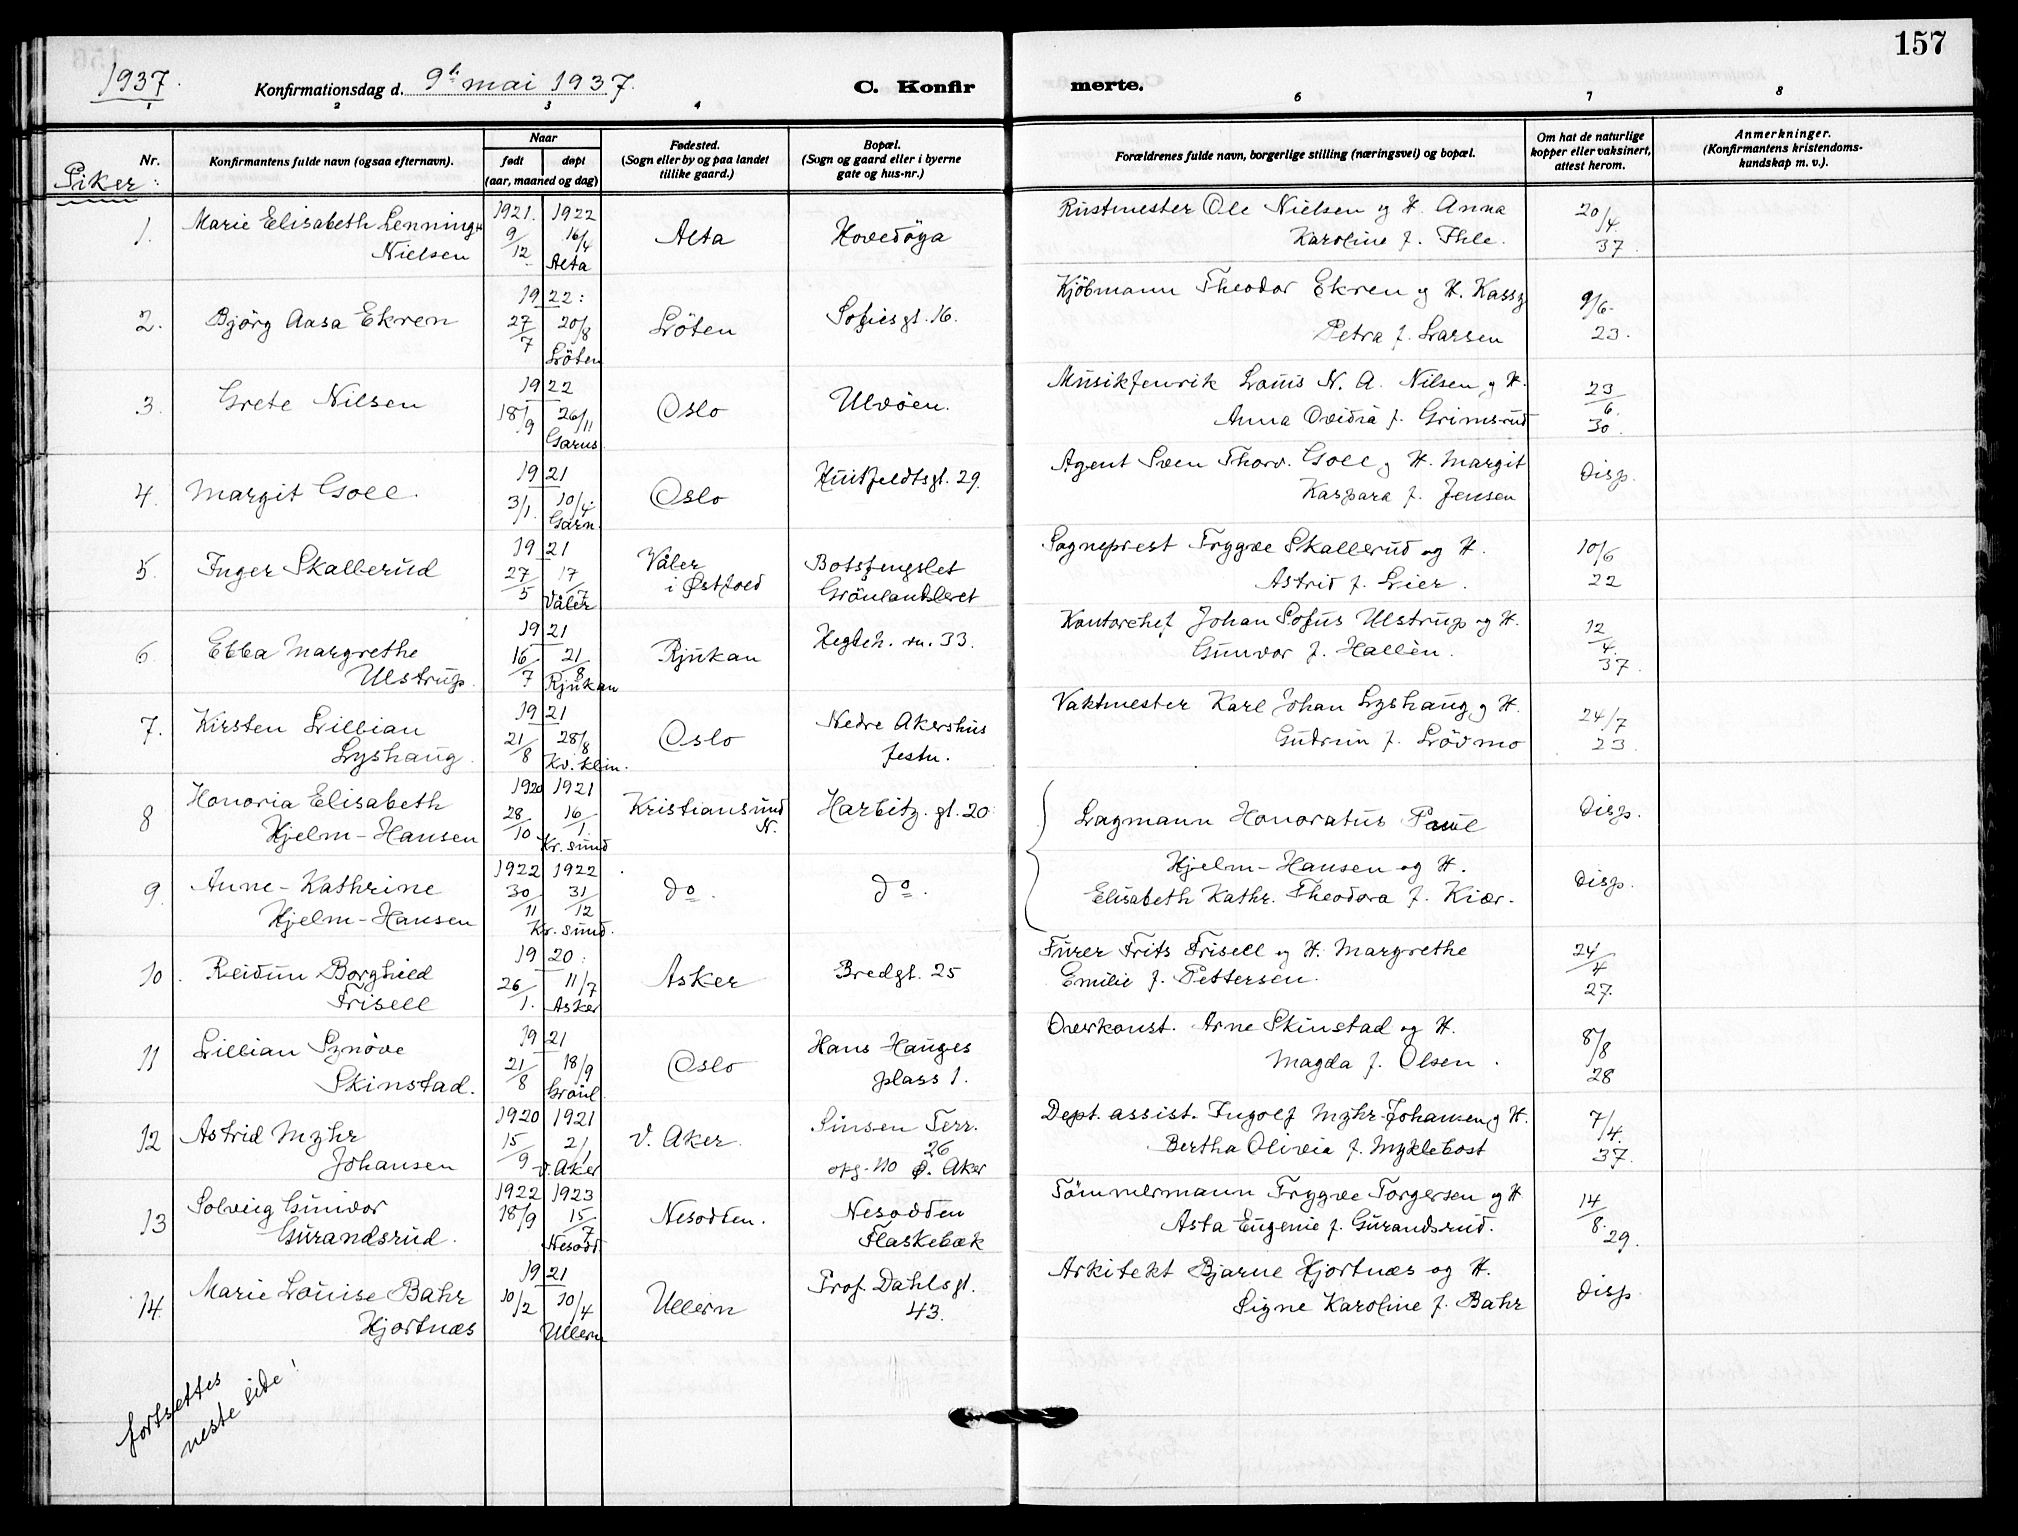 157
1937.
Konfirmationsdag d. 9de mai 1937.
C. Konfirmerte.
1 2 3 4 6 7 8
Nr.
Piker:
Konfirmantens fulde navn (ogsaa efternavn).
Naar
født døpt
(aar, maaned og dag)
Fødested.
(Sogn eller by og paa landet
tillike gaard.)
Bopæl.
(Sogn og gaard eller i byerne
gate og hus-nr.)
Forældrenes fulde navn, borgerlige stilling (næringsvei) og bopæl.
Om hat de naturlige
kopper eller vaksinert,
attest herom.
Anmerkninger.
(Konfirmantens kristendoms-
kundskap m. v.).
1. Marie Elisabeth Lenning
Nielsen
1921. 9/12
1922 16/4 Alta
Alta
Hovedöya
Rustmester Ole Nielsen og H. Anna
Karoline f. Thle.
20/4 37.
2. Björg Aasa Ekren
1922: 27/7 20/8 Löten
Löten
Sofiesgt. 16.
Kjöbmann Theodor Ekren og H. Kassy
Petra f. Larsen
9/6. 23.
3. Grete Nilsen
1922 18/9 26/11 Garns.
Oslo
Ulvöen.
Musikfenrik Louis N. A. Nilsen og H.
Anna Ovidia f. Grimsrud
23/6. 30.
4. Margit Goll.
1921 3/1. 10/4. Garn.
Oslo
Huitfeldtsgt. 29.
Agent Sven Thorv. Goll og H. Margit
Kaspara f. Jensen
Disp.
5. Inger Skallerud
1921 27/5 17/7 Våler
Våler
i Østfold
Botsfengslet
Grönlandsleret
Sogneprest Trygve Skallerud og H.
Astrid f. Lier.
10/6 22
6. Ebba Margrethe
Ulstrup.
1921 16/7 21/8 Rjukan
Rjukan
Hegdeh. vn. 33.
Kontorchef Johan Sofus Ulstrup og H.
Gunvor f. Hallèn.
12/4. 37.
7. Kirsten Lillian
Lyshaug.
1921 21/8 28/8 Kv. klin.
Oslo
Nedre Akershus
festn.
Vaktmester Karl Johan Lyshaug og H.
Gudrun f. Lövmo
24/7 23.
8 Honoria Elisabeth
Hjelm-Hansen
1920 28/10
1921 16/1. Kr. sund
Kristiansund
N.
Harbitz. gt. 20
Lagmann Honoratus Paul
Disp.
9. Anne-Kathrine
Hjelm-Hansen
1922 30/11
1922 31/12 Kr. sund.
do.
do.
Hjelm-Hansen og H.
Elisabeth Kathr. Theodora f. Kiær.
Disp.
10. Reidun Borghild
Frisell
1920: 26/1. 11/7 Asker
Asker
Bredgt. 25
Furer Frits Frisell og H. Margrethe
Emilie f. Pettersen.
24/4 27.
11 Lillian Synöve
Skinstad.
1921 21/8 18/9 Grönl.
Oslo
Hans Hauges
plass 1.
Overkonst. Arne Skinstad og H.
Magda f. Olsen.
8/8 28
12 Astrid Myhr
Johansen
1920 15/9
1921 2/1 V. Aker
V. Aker.
Sinsen Terr.
26
opg. no Ø. Aker
Dept. assist. Ingolf Myhr-Johansen og H.
Bertha Olivia f. Myklebost
7/4. 37.
13 Solveig Gunvor
Gurandsrud.
1922 18/9
1923 15/7 Nesodd.
Nesodden.
Nesodden
Flaskebæk
Tömmermann Trygve Torgersen og H
Asta Eugenie f. Gurandsrud.
14/8. 29.
14. Marie Louise Bahr
Hjortnæs
1921 10/2 10/4 Ullern
Ullern
Prof. Dahlsgt.
43.
Arkitekt Bjarne Hjortnæs og H.
Signe Karoline f. Bahr
Disp.
fortsettes
neste side!